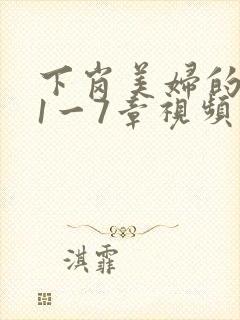 下岗美婦的
1一7章視頻
淇霏